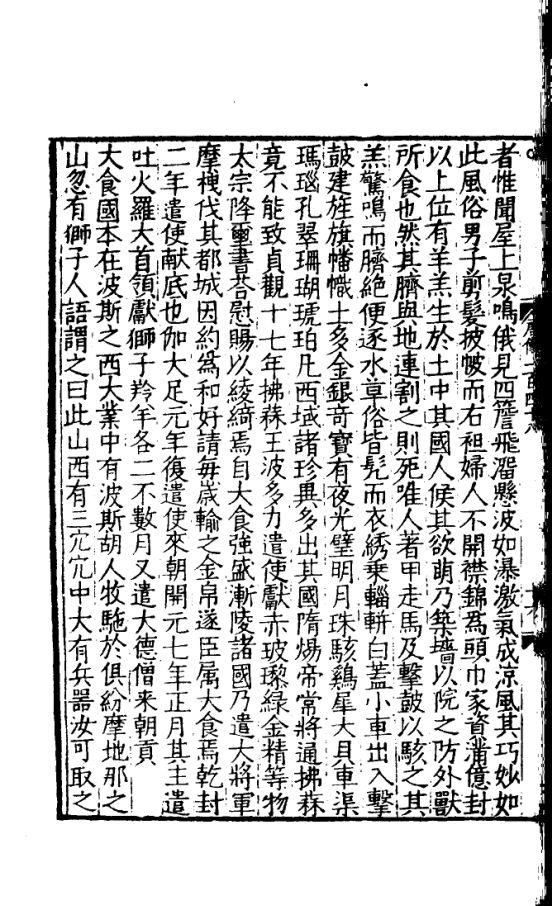 者惟聞屋上泉鳴俄見四簷飛溜懸波如瀑激氣成涼風其巧妙如
此風俗男子剪髮披帔而右袒婦人不開襟錦爲頭巾家資滿億封
以上位有羊羔生於土中其國人候其欲萌乃築墻以院之防外獸
所食也然其臍與地連割之則死唯人著甲走馬及擊鼓以駭之其
羔驚鳴而臍絶便逐水草俗皆髠而衣綉乗輜軿白蓋小車出入擊
鼓建旌旗幡幟土多金銀奇寶有夜光璧明月珠駭鷄犀大貝車渠
瑪瑙孔翠珊瑚琥珀凡西域諸珍異多出其國隋煬帝常將通拂菻
竟不能致貞觀十七年拂菻王波多力遣使獻赤玻瓈緑金精等物
太宗降璽書荅慰賜以綾綺焉自大食強盛漸陵諸國乃遣大將軍
摩栧伐其都城因約爲和好請毎歳輸之金帛遂臣属大食焉乾封
二年遣使献底也伽大足元年復遣使來朝開元七年正月其主遣
吐火羅大首領獻獅子羚羊各二不數月又遣大德僧来朝貢
大食國本在波斯之西大業中有波斯胡人牧駞於俱紛摩地那之
山忽有獅子人語謂之曰此山西有三穴穴中大有兵器汝可取之